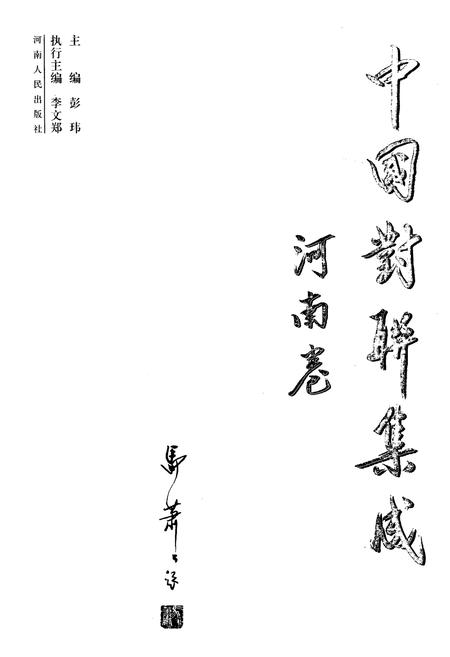 中國對聯集成
河南卷
馬蕭蕭
主編 彭玮
执行主编 李文郑
河南人民出版社